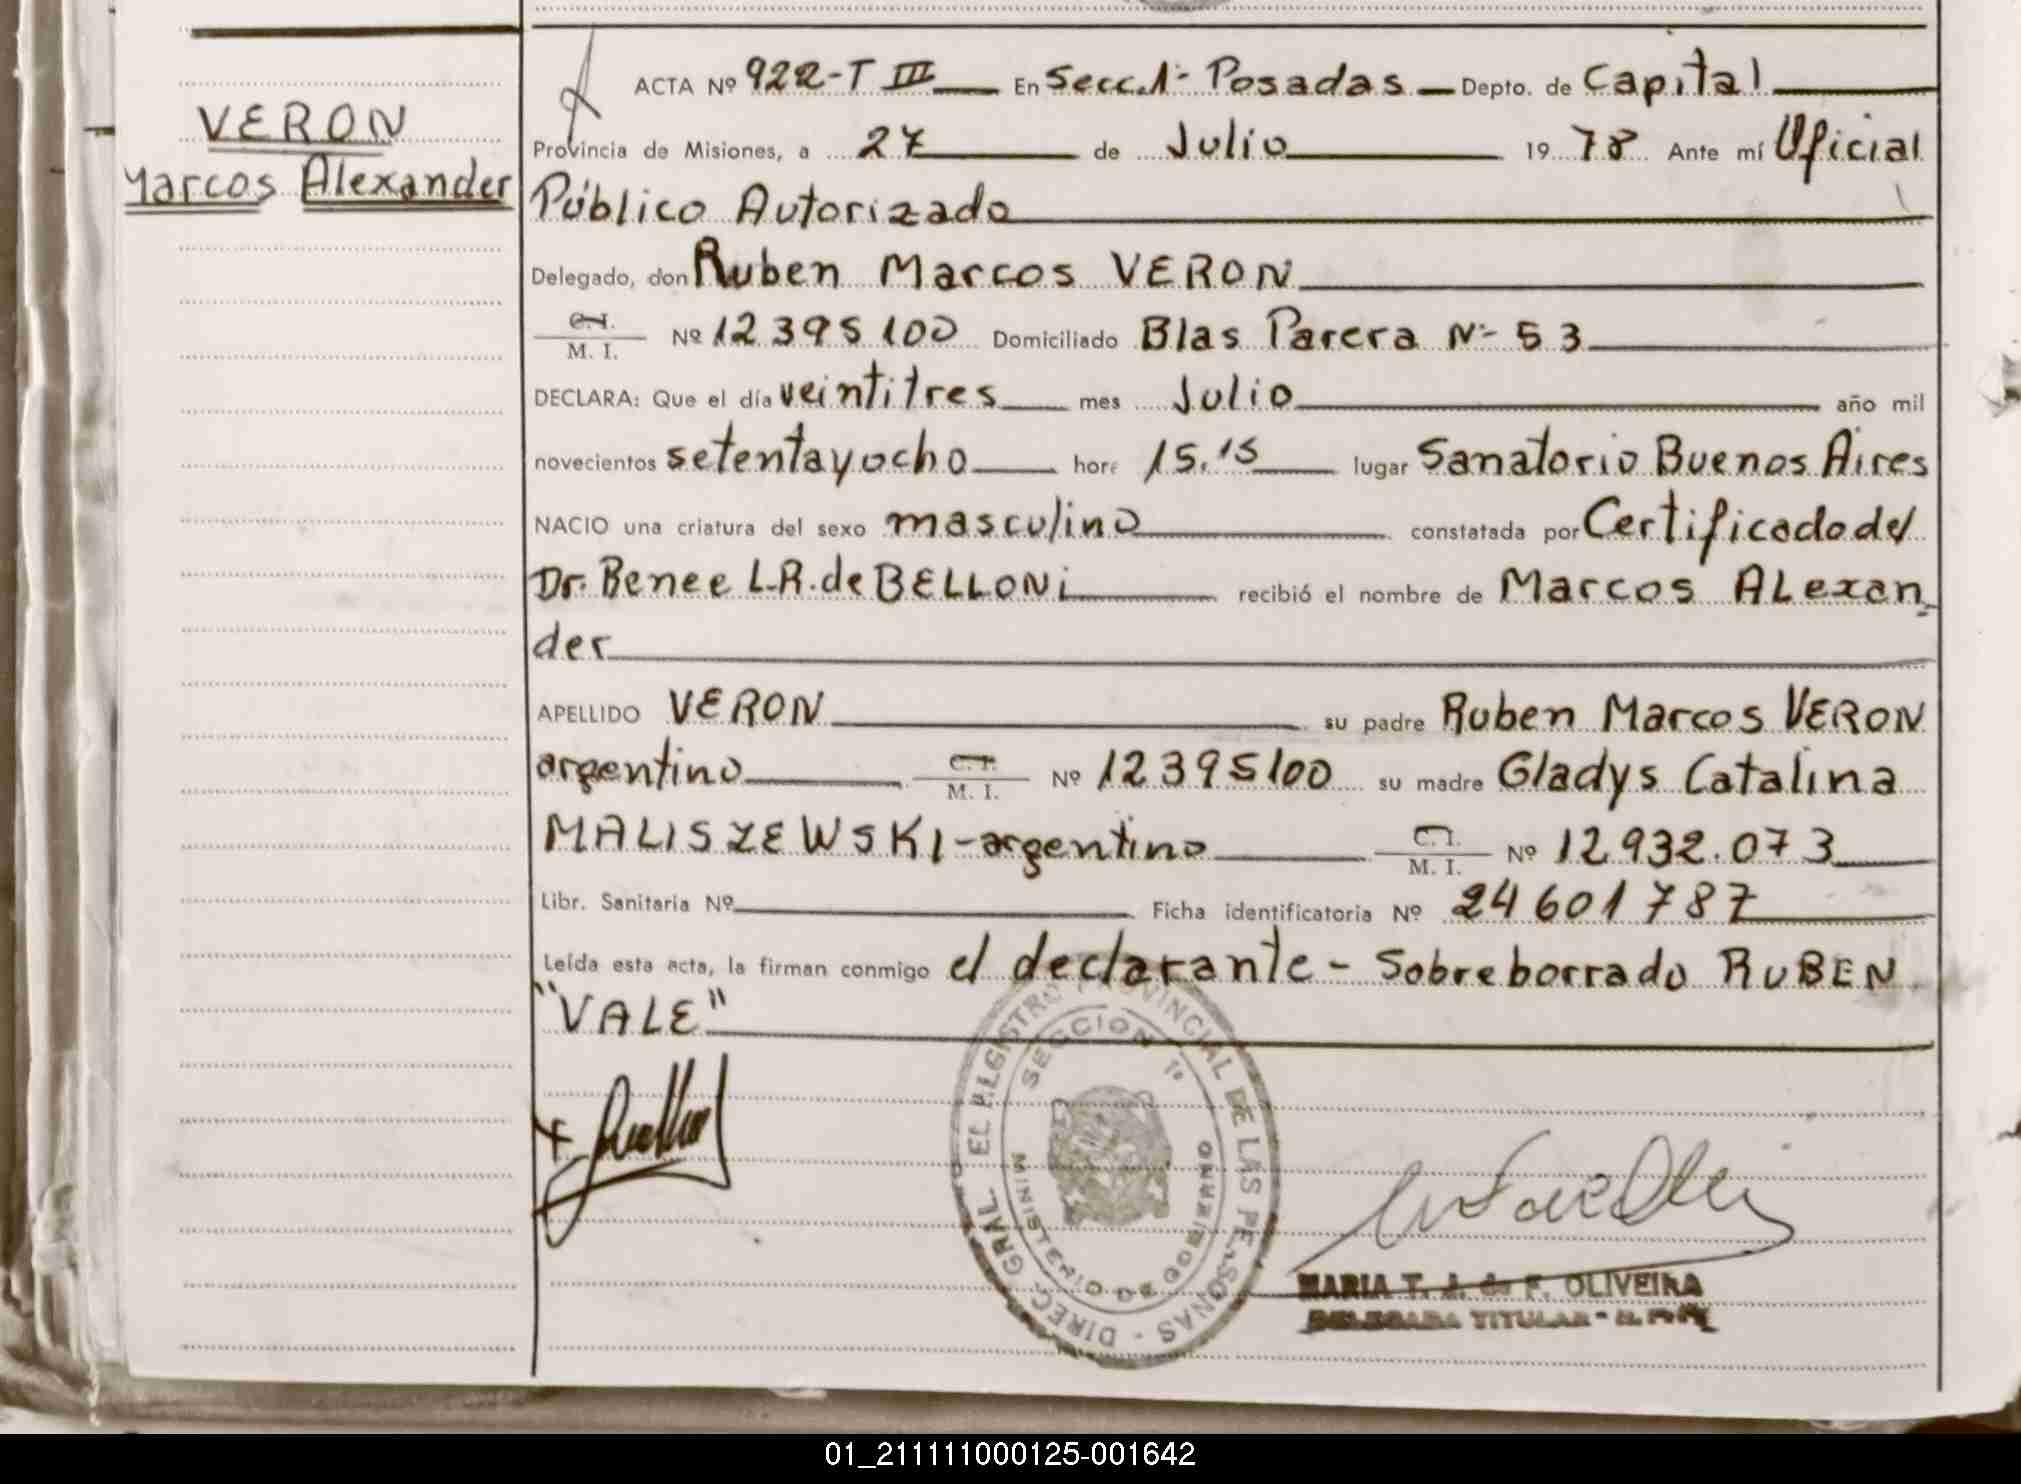 VERON
Marcos Alexander
ACTA Nº 922-T III En Secc.1ª Posadas Depto. de Capital
Provincia de Misiones, a 27 de Julio 19 78 Ante mí Oficial
Público Autorizado
Delegado, don Ruben Marcos VERON
C.I.
M. I. Nº 12 395 100 Domiciliado Blas Parera Nº 53
DECLARA: Que el día veintitres mes Julio año mil
novecientos setentayocho hora 15.15 lugar Sanatorio Buenos Aires
NACIO una criatura del sexo masculino constatada por Certificado del
Dr. Renee L.R. de BELLONi recibió el nombre de Marcos ALexan
der
APELLIDO VERON su padre Ruben Marcos VERON
argentino C.I. M. I. Nº 12395100 su madre Gladys Catalina
MALISZEWSKI-argentino C.I. M. I. Nº 12.932.073
Libr. Sanitaria Nº Ficha identificatoria Nº 24601787
Leída esta acta, la firman conmigo el declarante - Sobreborrado RUBEN
"VALE"
DIREC. GRAL. EL REGISTRO PROVINCIAL DE LAS PERSONAS
SECCION 1ª
MINISTERIO DE GOBIERNO
MARIA T. J. de F. OLIVEIRA
DELEGADA TITULAR
01_211111000125-001642